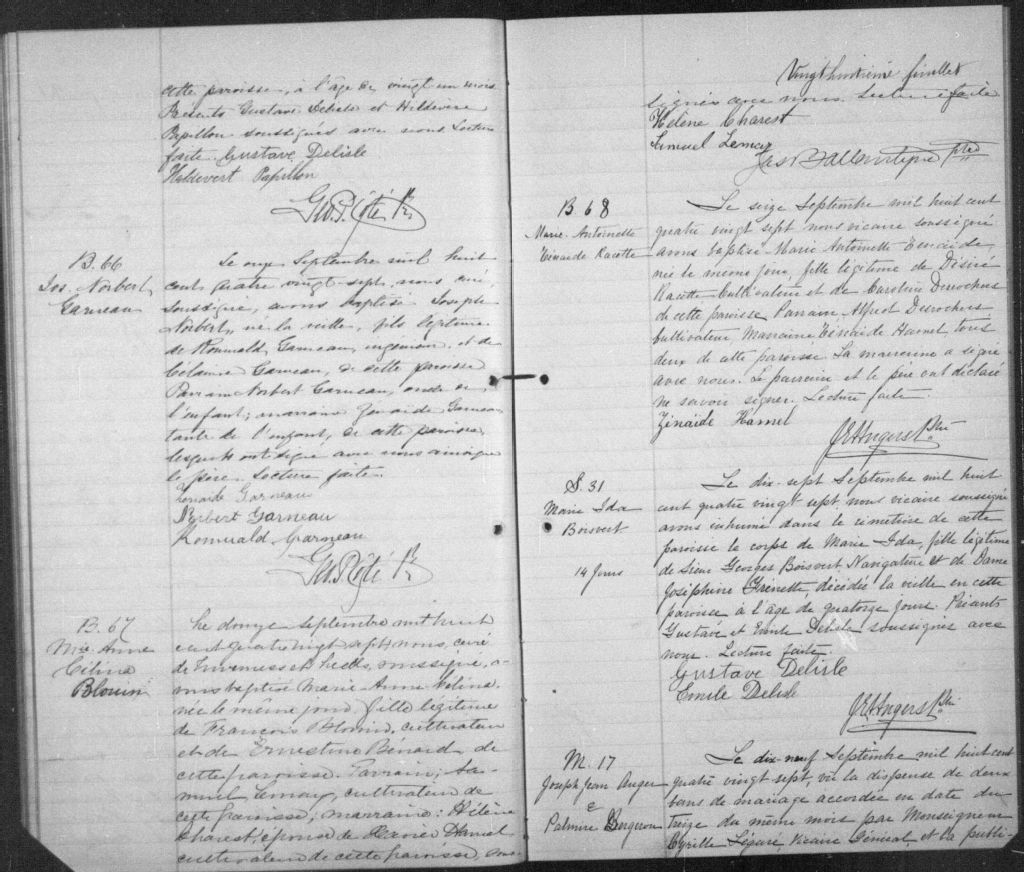 cette paroisse, à l'âge de vingt un mois
Présents Gustave Delisle et Hildevere
Papillon soussignés avec nous. Lecture
faite. Gustave Delisle
Hildevert Papillon
Geo. P. Côté Ptr
B. 66
Jos. Norbert
Garneau
Le onze Septembre mil huit
cent quatre vingt sept, nous curé,
soussigné, avons baptisé Joseph
Norbert, né la veille, fils légitime
de Romuald Garneau, ingénieur, et de
Garneau, de cette paroisse
Parrain Norbert Garneau, oncle de
l'enfant; marraine Zenaide Garneau
tante de l'enfant, de cette paroisse,
lesquels ont signé avec nous ainsi que
le père. Lecture faite.
Zenaide Garneau
Norbert Garneau
Romuald Garneau
Geo. P. Côté Ptr
B. 67
Mie Anne
Célina
Blouin
Le douze septembre mil huit
cent quatre vingt sept, nous, curé
de Inverness et Leeds, soussigné, a-
vons baptisé Marie Anne Célina
née le même jour fille légitime
de François Blouin, cultivateur
et de Ernestine Bénard de
cette paroisse. Parrain; Sa-
muel Lemay, cultivateur de
cette paroisse; marraine: Hélène
Charest, épouse de Xavier Hamel
cultivateur de cette paroisse, sous-
Vingt huitième feuillet
signés avec nous. Lecture faite
Hélène Charest
Samuel Lemay
Jas Ballantyne ptre
B. 68
Marie-Antoinette
Zénaide Racette
Le seize Septembre mil huit cent
quatre vingt sept nous vicaire soussigné
avons baptisé Marie Antoinette Zénaide
née le même jour, fille légitime de Désiré
Racette Cultivateur et de Caroline Desrochers
de cette paroisse Parrain, Alfred Desrochers
Cultivateur, Marraine Zénaide Hamel, tous
deux de cette paroisse. La marraine a signé
avec nous. Le parrain et le père ont déclaré
ne savoir signer. Lecture faite.
Zénaide Hamel
J E A Angers Ptre
S. 31
Marie Ida
Boisvert
14 Jours
Le dix-sept Septembre mil huit
cent quatre vingt sept, nous vicaire soussigné
avons inhumé dans le cimetière de cette
paroisse le corps de Marie Ida, fille légitime
de Sieur Georges Boisvert, Navigateur et de Dame
Joséphine Grenette, décédée la veille en cette
paroisse à l'âge de quatorze jours. Présents
Gustave et Emile Delisle soussignés avec
nous. Lecture faite.
Gustave Delisle
Emile Delisle
J E A Angers Ptre
M. 17
Joseph Jean Auger
&
Palmire Bergeron
Le dix-neuf Septembre mil huit cent
quatre vingt sept, vu la dispense de deux
bans de mariage accordée en date du
treize du même mois par Monseigneur
Cyrille Légaré, Vicaire Général, et la publi-